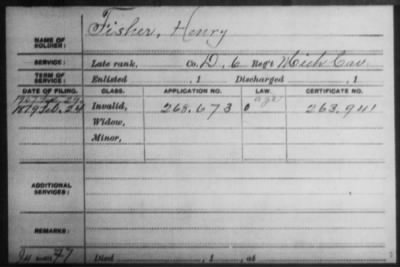 Fisher, Henry
NAME OF SOLDIER:
SERVICE: Late rank, Co. D, 6 Reg't Mich Cav.
TERM OF SERVICE: Enlisted , 1 Discharged , 1
DATE OF FILING. CLASS. APPLICATION NO. LAW. CERTIFICATE NO.
age
1879 Feb. 24 Invalid, 268.673 263.941
Widow,
Minor,
ADDITIONAL SERVICES:
REMARKS:
Died , 1 , at